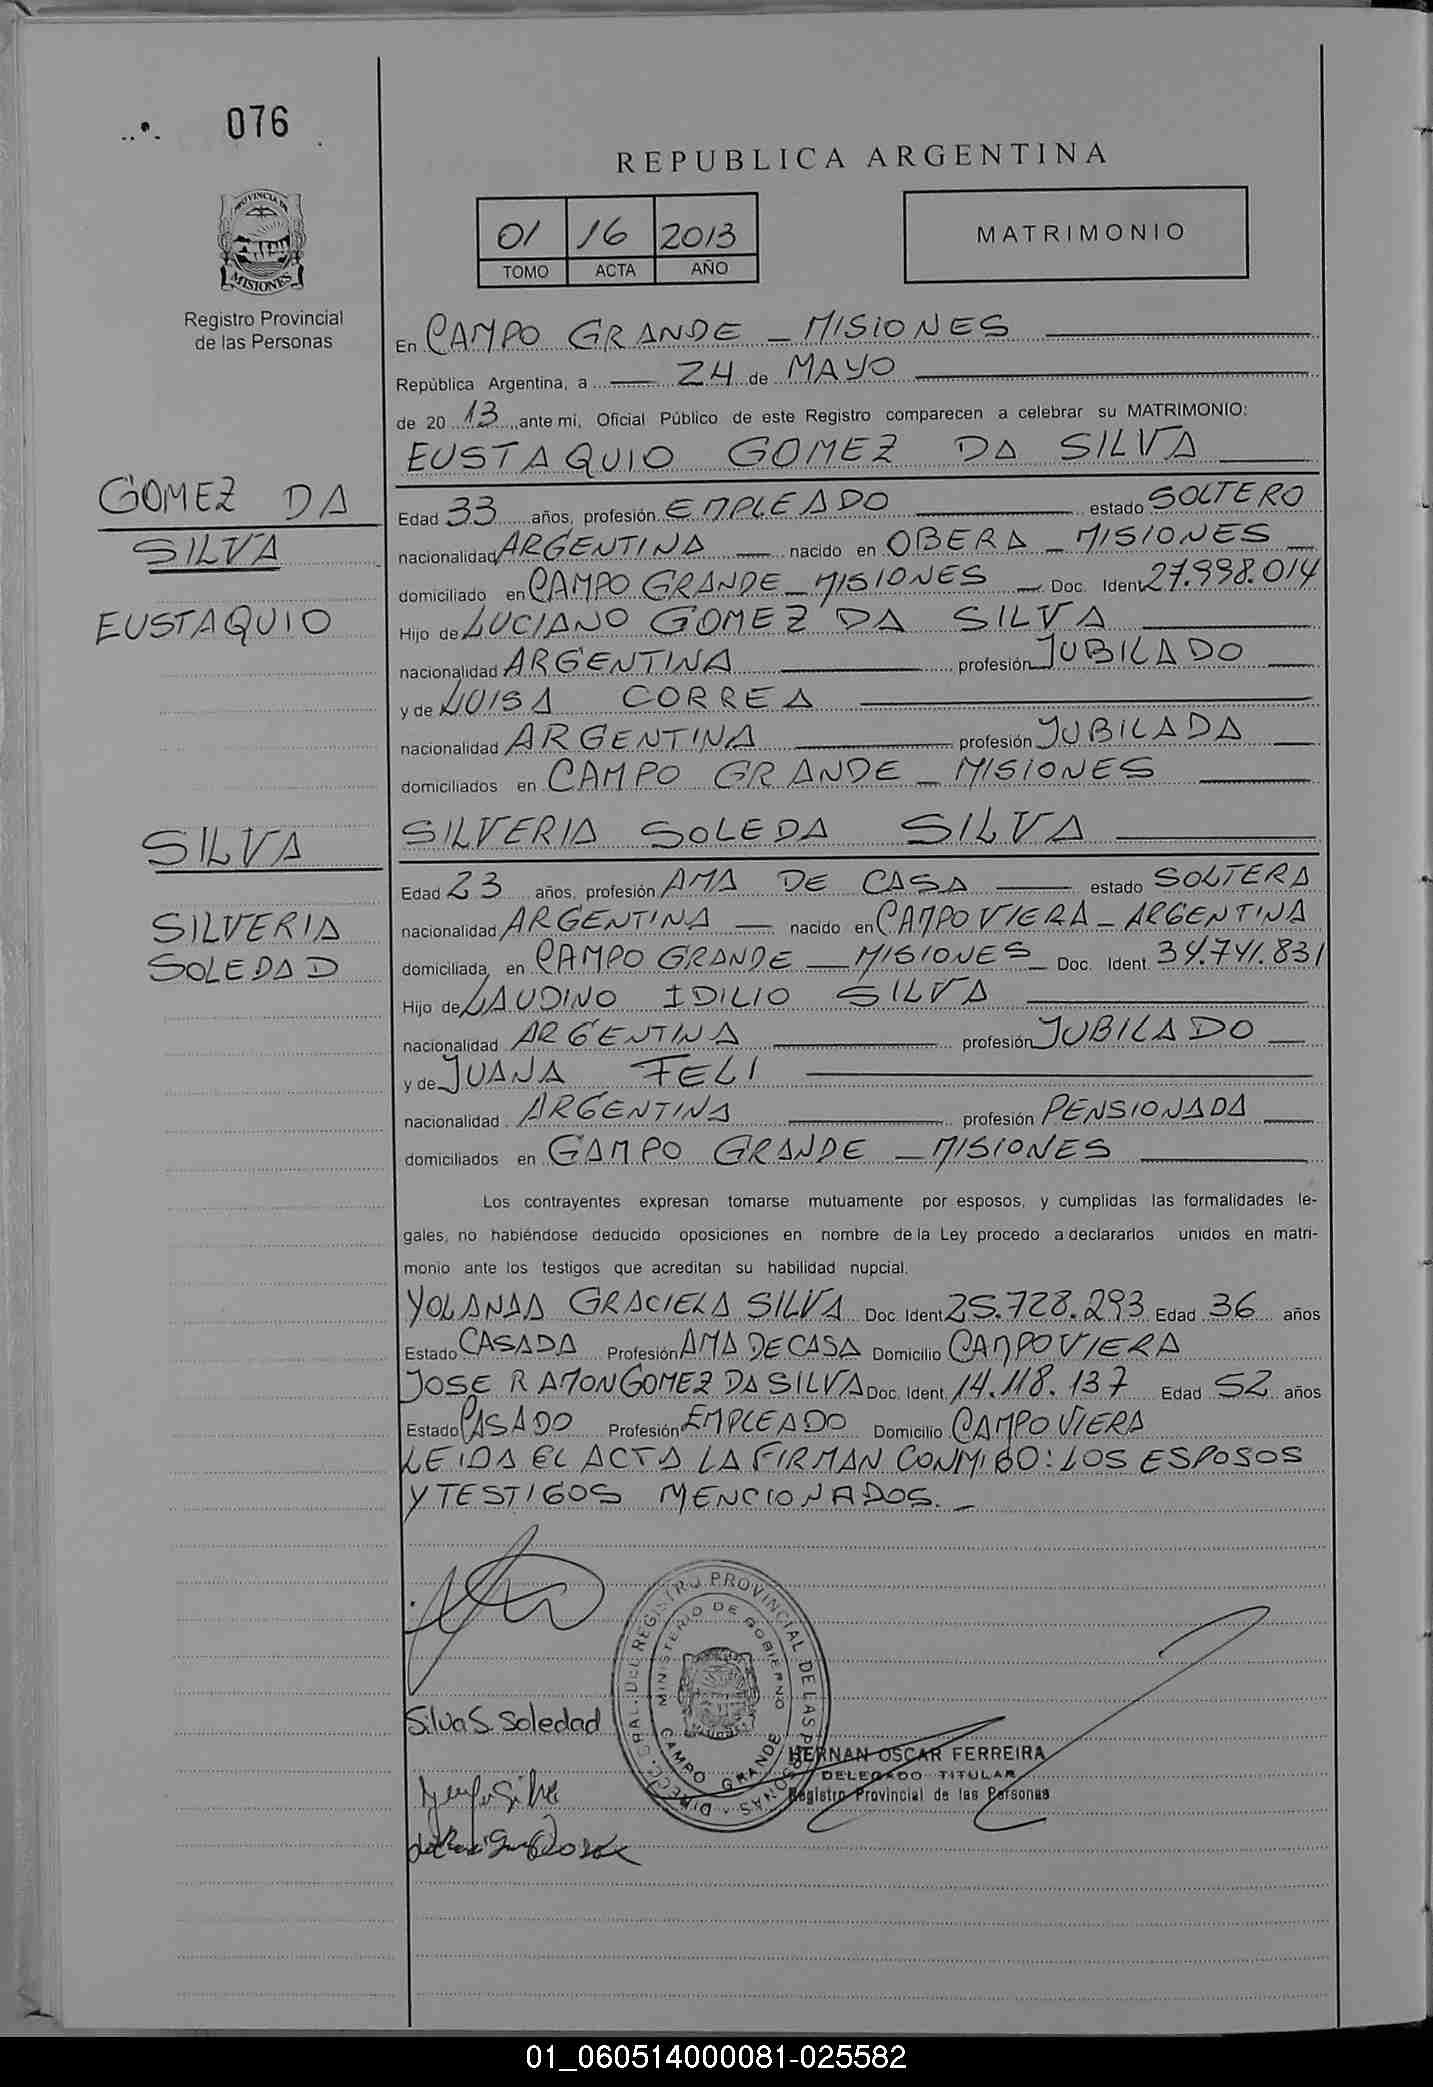 076
PROVINCIA DE
MISIONES
Registro Provincial
de las Personas
REPUBLICA ARGENTINA
01 16 2013
TOMO ACTA AÑO
MATRIMONIO
En CAMPO GRANDE - MISIONES
República Argentina, a 24 de MAYO
de 20 13 ante mi, Oficial Público de este Registro comparecen a celebrar su MATRIMONIO:
EUSTAQUIO GOMEZ DA SILVA
GOMEZ DA
SILVA
EUSTAQUIO
Edad 33 años, profesión EMPLEADO estado SOLTERO
nacionalidad ARGENTINA nacido en OBERA - MISIONES
domiciliado en CAMPO GRANDE - MISIONES Doc. Ident 27.998.014
Hijo de LUCIANO GOMEZ DA SILVA
nacionalidad ARGENTINA profesión JUBILADO
y de LUISA CORREA
nacionalidad ARGENTINA profesión JUBILADA
domiciliados en CAMPO GRANDE - MISIONES
SILVERIA SOLEDA SILVA
SILVA
SILVERIA
SOLEDAD
Edad 23 años, profesión AMA DE CASA estado SOLTERA
nacionalidad ARGENTINA nacido en CAMPO VIERA - ARGENTINA
domiciliada en CAMPO GRANDE - MISIONES Doc. Ident. 34.741.831
Hijo de LAUDINO IDILIO SILVA
nacionalidad ARGENTINA profesión JUBILADO
y de JUANA FELI
nacionalidad ARGENTINA profesión PENSIONADA
domiciliados en CAMPO GRANDE - MISIONES
Los contrayentes expresan tomarse mutuamente por esposos, y cumplidas las formalidades le-
gales, no habiéndose deducido oposiciones en nombre de la Ley procedo a declararlos unidos en matri-
monio ante los testigos que acreditan su habilidad nupcial.
YOLANDA GRACIELA SILVA Doc. Ident 25.728.293 Edad 36 años
Estado CASADA Profesión AMA DE CASA Domicilio CAMPO VIERA
JOSE RAMON GOMEZ DA SILVA Doc. Ident. 14.118.137 Edad 52 años
Estado CASADO Profesión EMPLEADO Domicilio CAMPO VIERA
LEIDA EL ACTA LA FIRMAN CONMIGO: LOS ESPOSOS
Y TESTIGOS MENCIONADOS. -
DIRECC. GRAL. DEL REGISTRO PROVINCIAL DE LAS PERSONAS
MINISTERIO DE GOBIERNO
CAMPO GRANDE
Silva S. Soledad
HERNAN OSCAR FERREIRA
DELEGADO TITULAR
Registro Provincial de las Personas
01_060514000081-025582